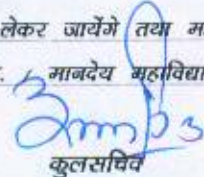 लेकर जायेंगे तथा म
. / मानदेय महाविद्या
कुलसचिव